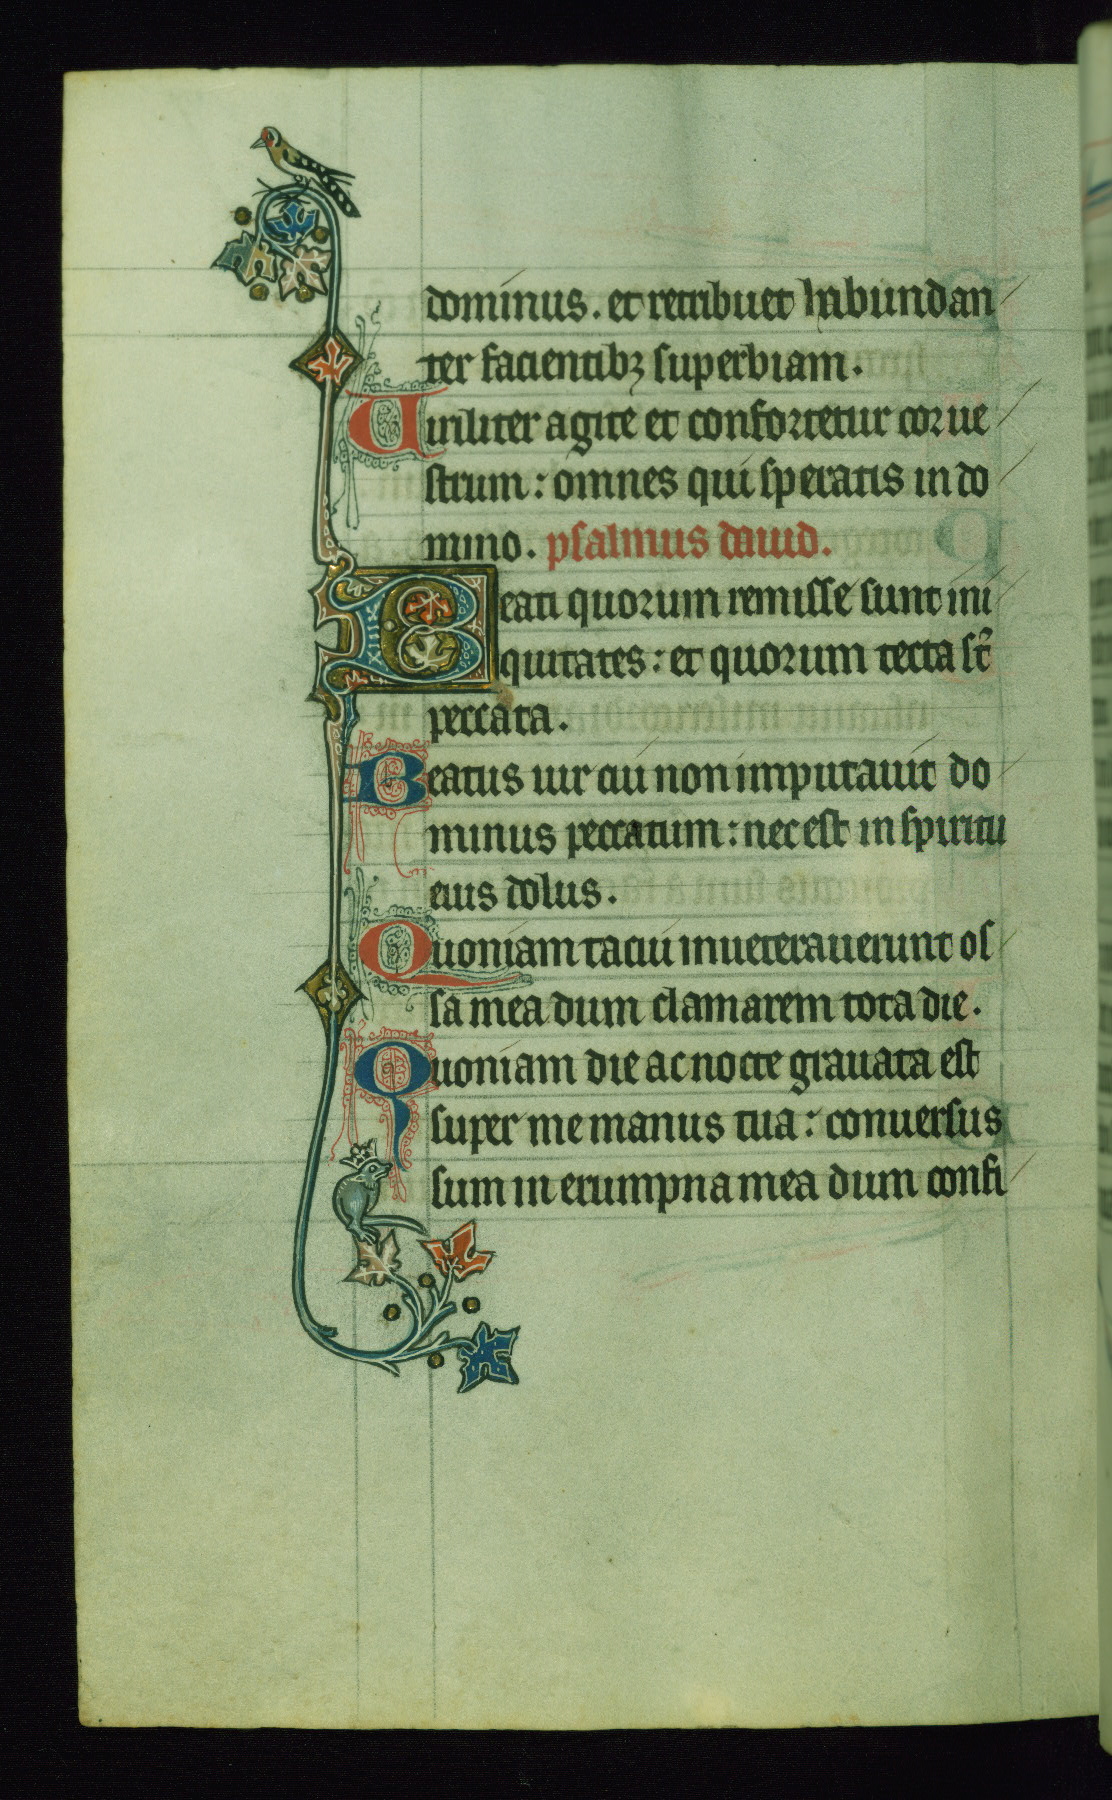 dominus. et retribuet habundan
ter facientibꝫ superbiam.
Uiriliter agite et confortetur cor ue
strum: omnes qui speratis in do
mino. psalmus dauid.
Beati quorum remisse sunt ini
quitates: et quorum tecta sūt
peccata.
Beatus uir cui non imputauit do
minus peccatum: nec est in spiritu
eius dolus.
Quoniam tacui inueterauerunt os
sa mea dum clamarem tota die.
Quoniam die ac nocte grauata est
super me manus tua: conuersus
sum in erumpna mea dum confi